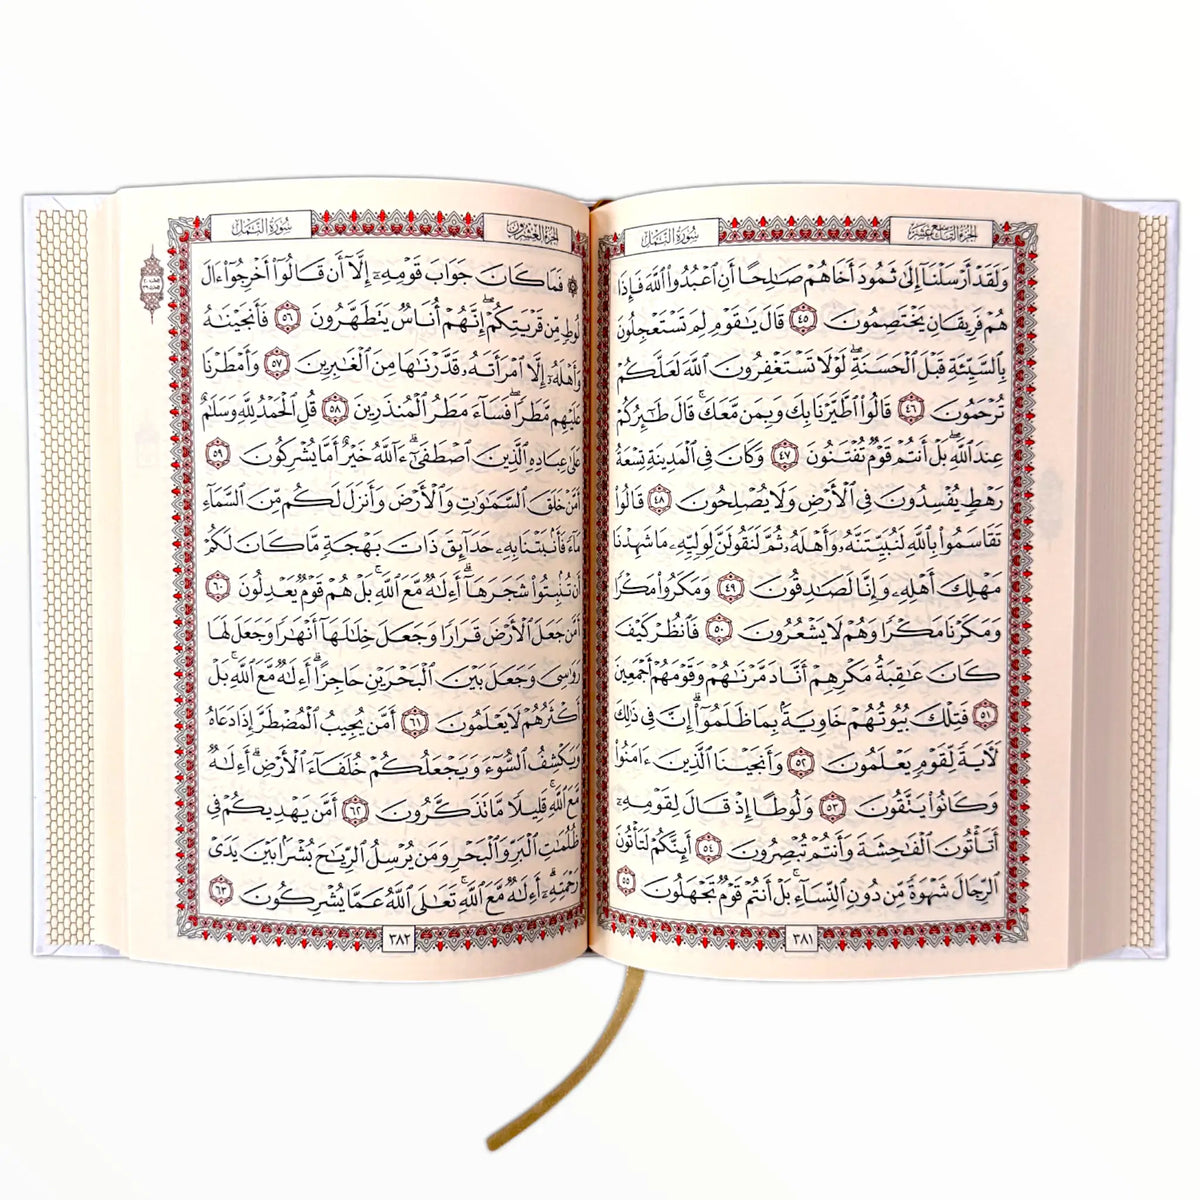 الجزء التاسع عشر
سورة النمل
ولقد أرسلنا إلى ثمود أخاهم صالحا أن اعبدوا الله فإذا
هم فريقان يختصمون ٤٥ قال يا قوم لم تستعجلون
بالسيئة قبل الحسنة لولا تستغفرون الله لعلكم
ترحمون ٤٦ قالوا اطيرنا بك وبمن معك قال طائركم
عند الله بل أنتم قوم تفتنون ٤٧ وكان في المدينة تسعة
رهط يفسدون في الأرض ولا يصلحون ٤٨ قالوا
تقاسموا بالله لنبيتنه وأهله ثم لنقولن لوليه ما شهدنا
مهلك أهله وإنا لصادقون ٤٩ ومكروا مكرا
ومكرنا مكرا وهم لا يشعرون ٥٠ فانظر كيف
كان عاقبة مكرهم أنا دمرناهم وقومهم أجمعين
٥١ فتلك بيوتهم خاوية بما ظلموا إن في ذلك
لآية لقوم يعلمون ٥٢ وأنجينا الذين ءامنوا
وكانوا يتقون ٥٣ ولوطا إذ قال لقومه
أتأتون الفاحشة وأنتم تبصرون ٥٤ أئنكم لتأتون
الرجال شهوة من دون النساء بل أنتم قوم تجهلون ٥٥
٣٨١
الجزء العشرون
سورة النمل
فما كان جواب قومه إلا أن قالوا أخرجوا ءال
لوط من قريتكم إنهم أناس يتطهرون ٥٦ فأنجيناه
وأهله إلا امرأته قدرناها من الغابرين ٥٧ وأمطرنا
عليهم مطرا فساء مطر المنذرين ٥٨ قل الحمد لله وسلام
على عباده الذين اصطفى ءالله خير أما يشركون ٥٩
أمن خلق السماوات والأرض وأنزل لكم من السماء
ماء فأنبتنا به حدائق ذات بهجة ما كان لكم
أن تنبتوا شجرها أءله مع الله بل هم قوم يعدلون ٦٠
أمن جعل الأرض قرارا وجعل خلالها أنهارا وجعل لها
رواسي وجعل بين البحرين حاجزا أءله مع الله بل
أكثرهم لا يعلمون ٦١ أمن يجيب المضطر إذا دعاه
ويكشف السوء ويجعلكم خلفاء الأرض أءله
مع الله قليلا ما تذكرون ٦٢ أمن يهديكم في
ظلمات البر والبحر ومن يرسل الرياح بشرا بين يدي
رحمته أءله مع الله تعالى الله عما يشركون ٦٣
٣٨٢